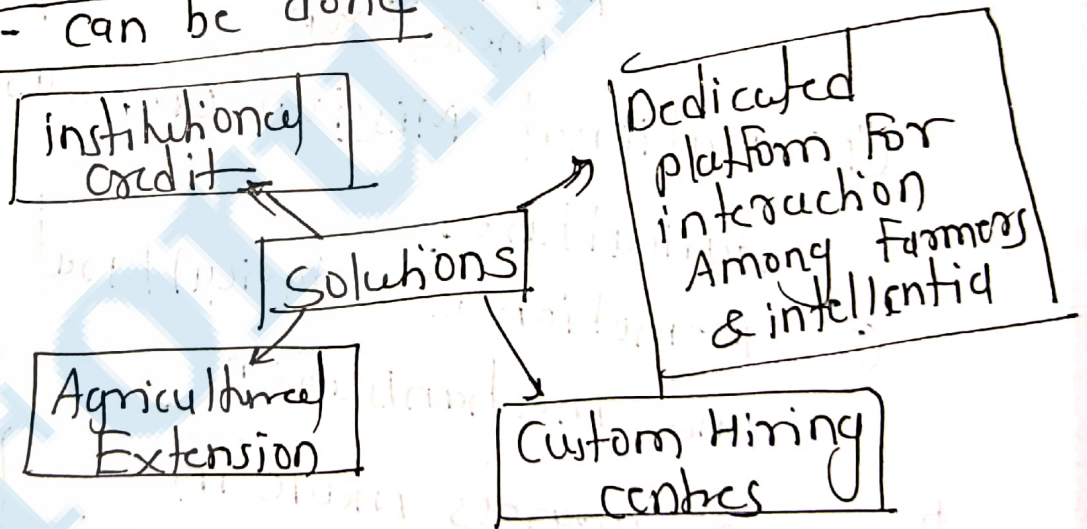 - can be done
institutional
credit
Dedicated
platfom for
interaction
Among Farmers
& intellentia
Solutions
Agricultural
Extension
Custom Hiring
centres